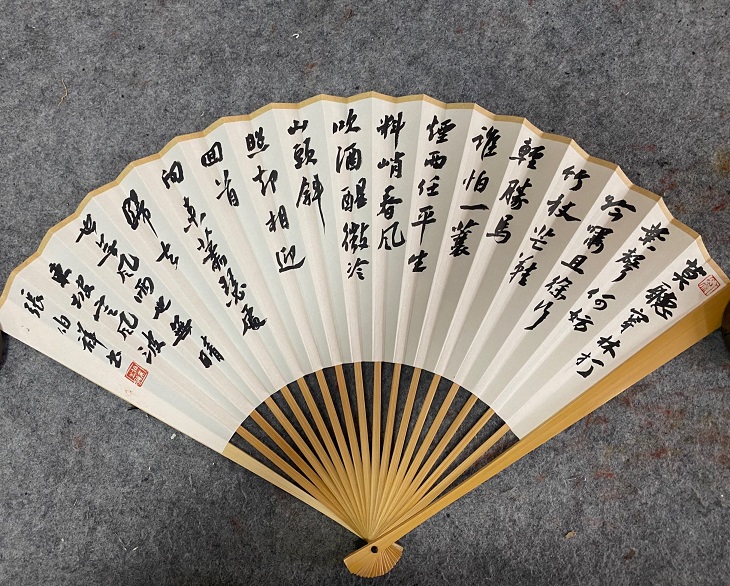 莫聽穿林打
葉聲何妨
吟嘯且徐行
竹杖芒鞋
輕勝馬
誰怕一蓑
煙雨任平生
料峭春風
吹酒醒微冷
山頭斜
照却相迎
回首
向來蕭瑟處
歸去
也無風雨也無晴
東坡定風波
張伯祥書